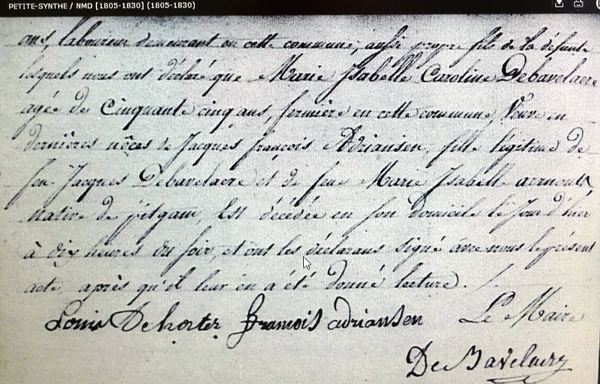 PETITE-SYNTHE / NMD [1805-1830] (1805-1830)
ans, laboureur demeurant en cette commune, aussi propre fils de la defunte
lesquels nous ont déclaré que Marie Isabelle Caroline Debavelaere
agée de Cinquante cinq ans, fermière en cette commune Veuve en
dernières nôces de Jacques françois Adriansen, fille légitime de
feu Jacques Debavelaere et de feu Marie Isabelle arnouts
native de pitgam, Est décédée en son domicile le jour d'hier
à dix heures du soir, et ont les déclarans signé avec nous le présent
acte, après qu'il leur en a été donné lecture. /.
Louis Dehorter françois adriansen Le Maire
De Bavelaere